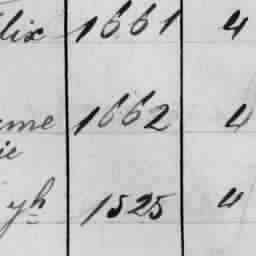 lix 1661 4
eme 1662 4
ie
yh 1525 4